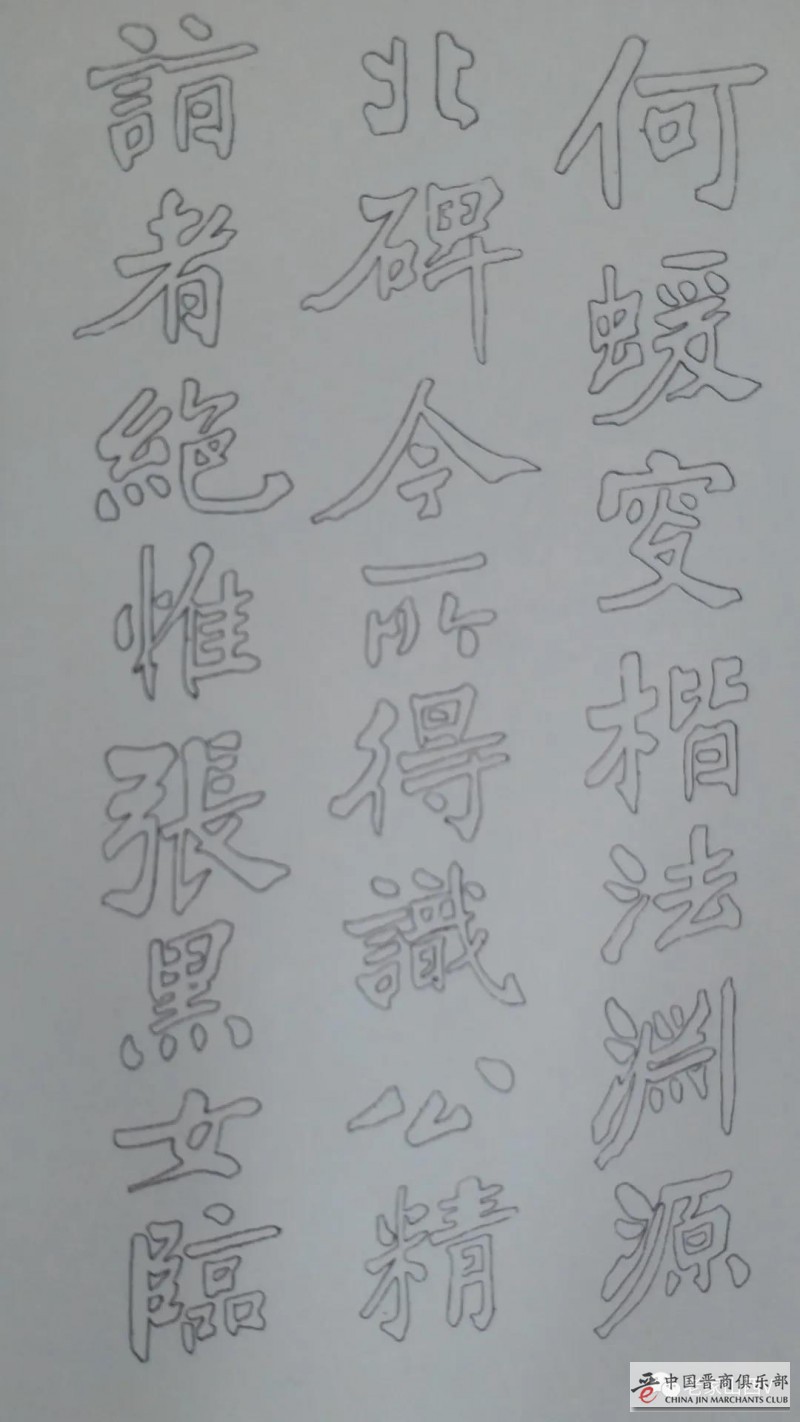 何蝯叟楷法淵源
北碑今所得識公精
詣者絕惟張黑女臨
中国晋商俱乐部
CHINA JIN MARCHANTS CLUB